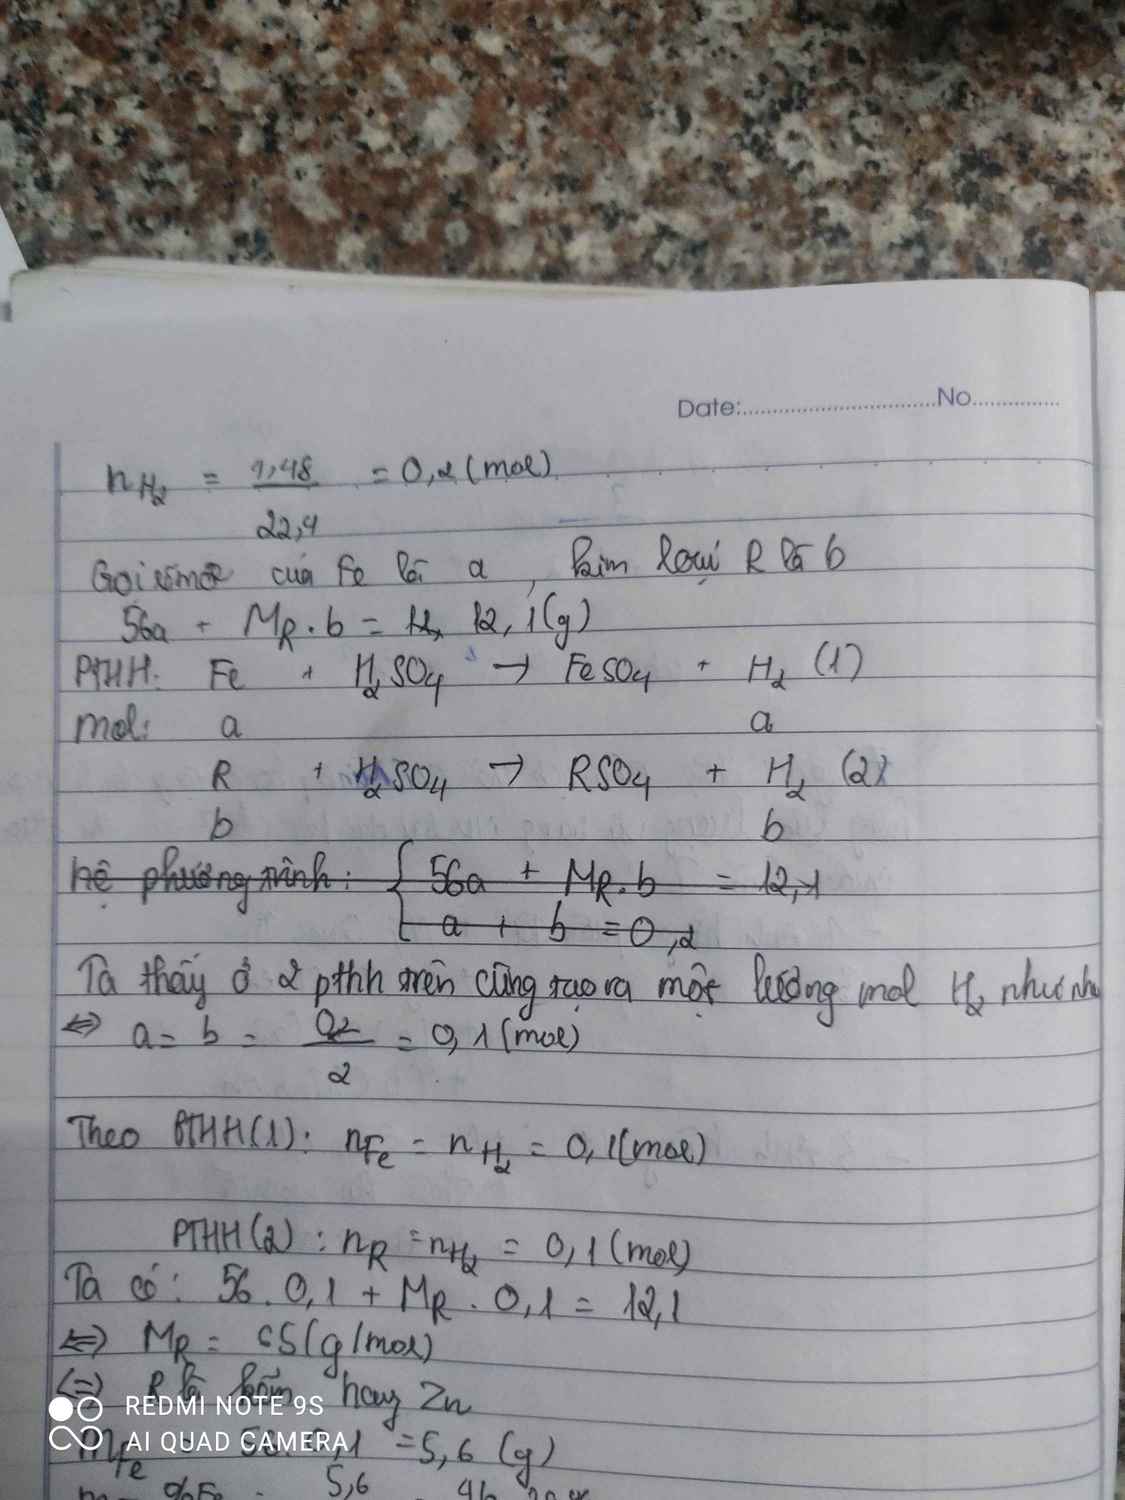 Date:..............................No..............
nH2 = 1,48 = 0,2 (mol)
22,4
Gọi số mol của Fe là a , kim loại R là b
56a + MR.b = 12, 12,1(g)
PTHH: Fe + H2SO4 → FeSO4 + H2 (1)
mol: a a
R + H2SO4 → RSO4 + H2 (2)
b b
hệ phương trình: { 56a + MR.b = 12,1
a + b = 0,2
Ta thấy ở 2 pthh trên cùng tạo ra một lượng mol H2 như nh
⇔ a = b = 0,2 = 0,1 (mol)
2
Theo PTHH(1): nFe = nH2 = 0,1(mol)
PTHH(2) : nR = nH2 = 0,1 (mol)
Ta có: 56.0,1 + MR.0,1 = 12,1
⇔ MR = 65(g/mol)
⇔ R là kẽm hay Zn
REDMI NOTE 9S
AI QUAD CAMERA
mFe = 56.0,1 = 5,6 (g)
%Fe = 5,6